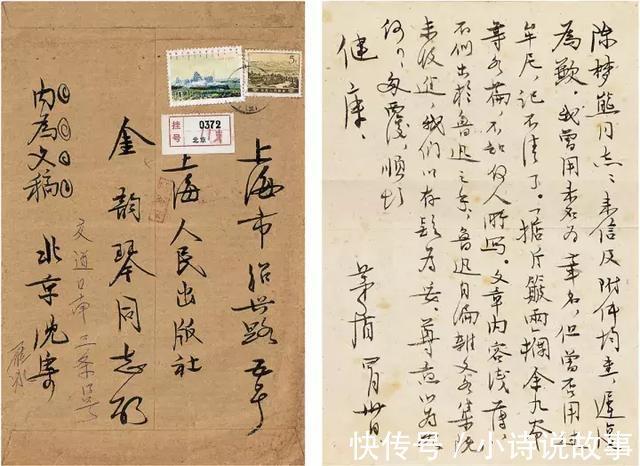 上海市绍兴路五号
上海人民出版社
金韵琴同志
北京沈寄
内为文稿
交道口南三条
雁冰
挂号
0372
北京
陈梦熊同志：来信及附件均悉，迟复
为歉。我曾用未名为笔名，但曾否用过
牟尼，记不清了。
等各篇，不知何人所写。文章内容浅薄，
不似出於鲁迅之手，鲁迅自编雜文各集既
未收进，我们以存疑为妥。尊意以为
如何？匆覆，顺颂
健康
茅盾 月卅日
快传号/小诗说故事